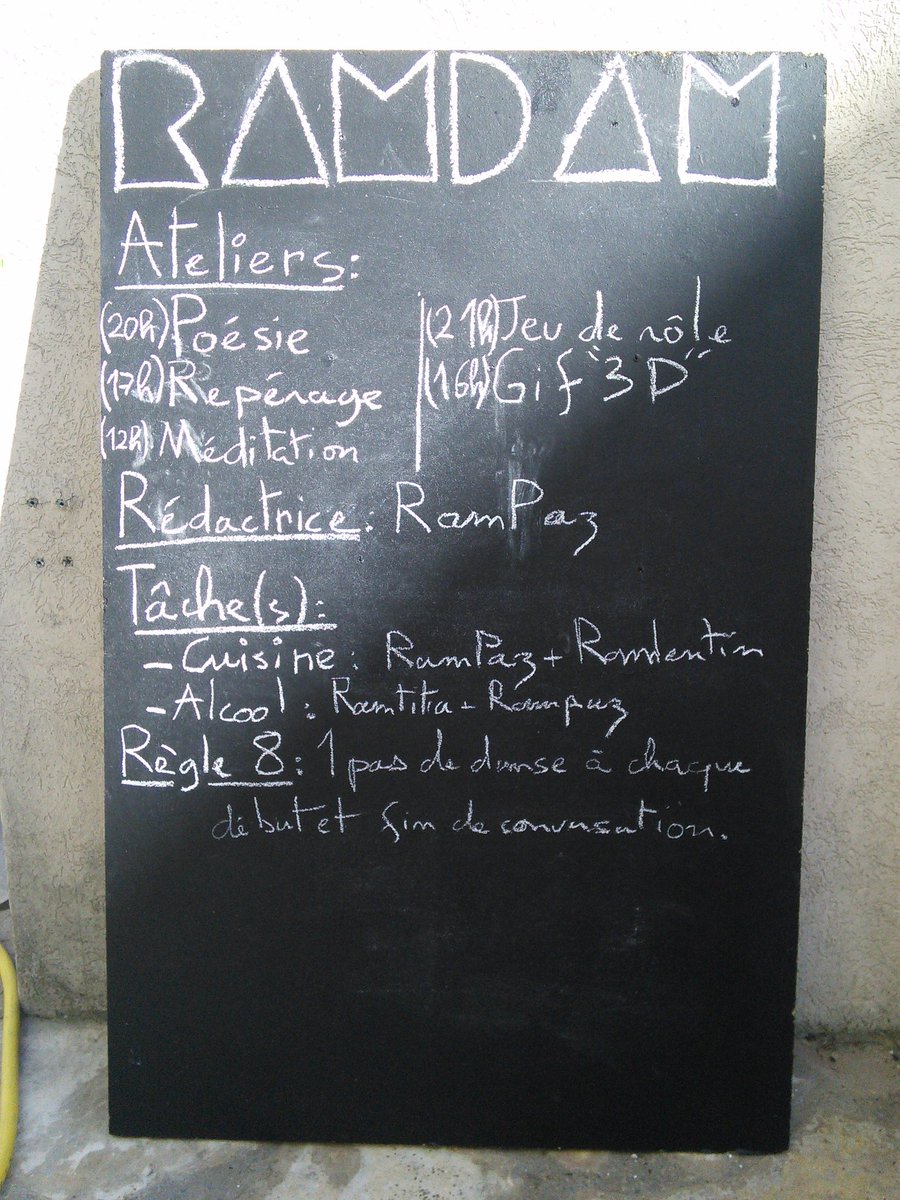 RAMDAM
Ateliers:
(20h) Poésie
(17h) Repérage
(12h) Méditation
(21h) Jeu de rôle
(16h) Gif "3D"
Rédactrice: RamPaz
Tâche(s):
- Cuisine: RamPaz + Ramdentin
- Alcool: Ramtita - Rampaz
Règle 8: 1 pas de danse à chaque
début et fin de conversation.